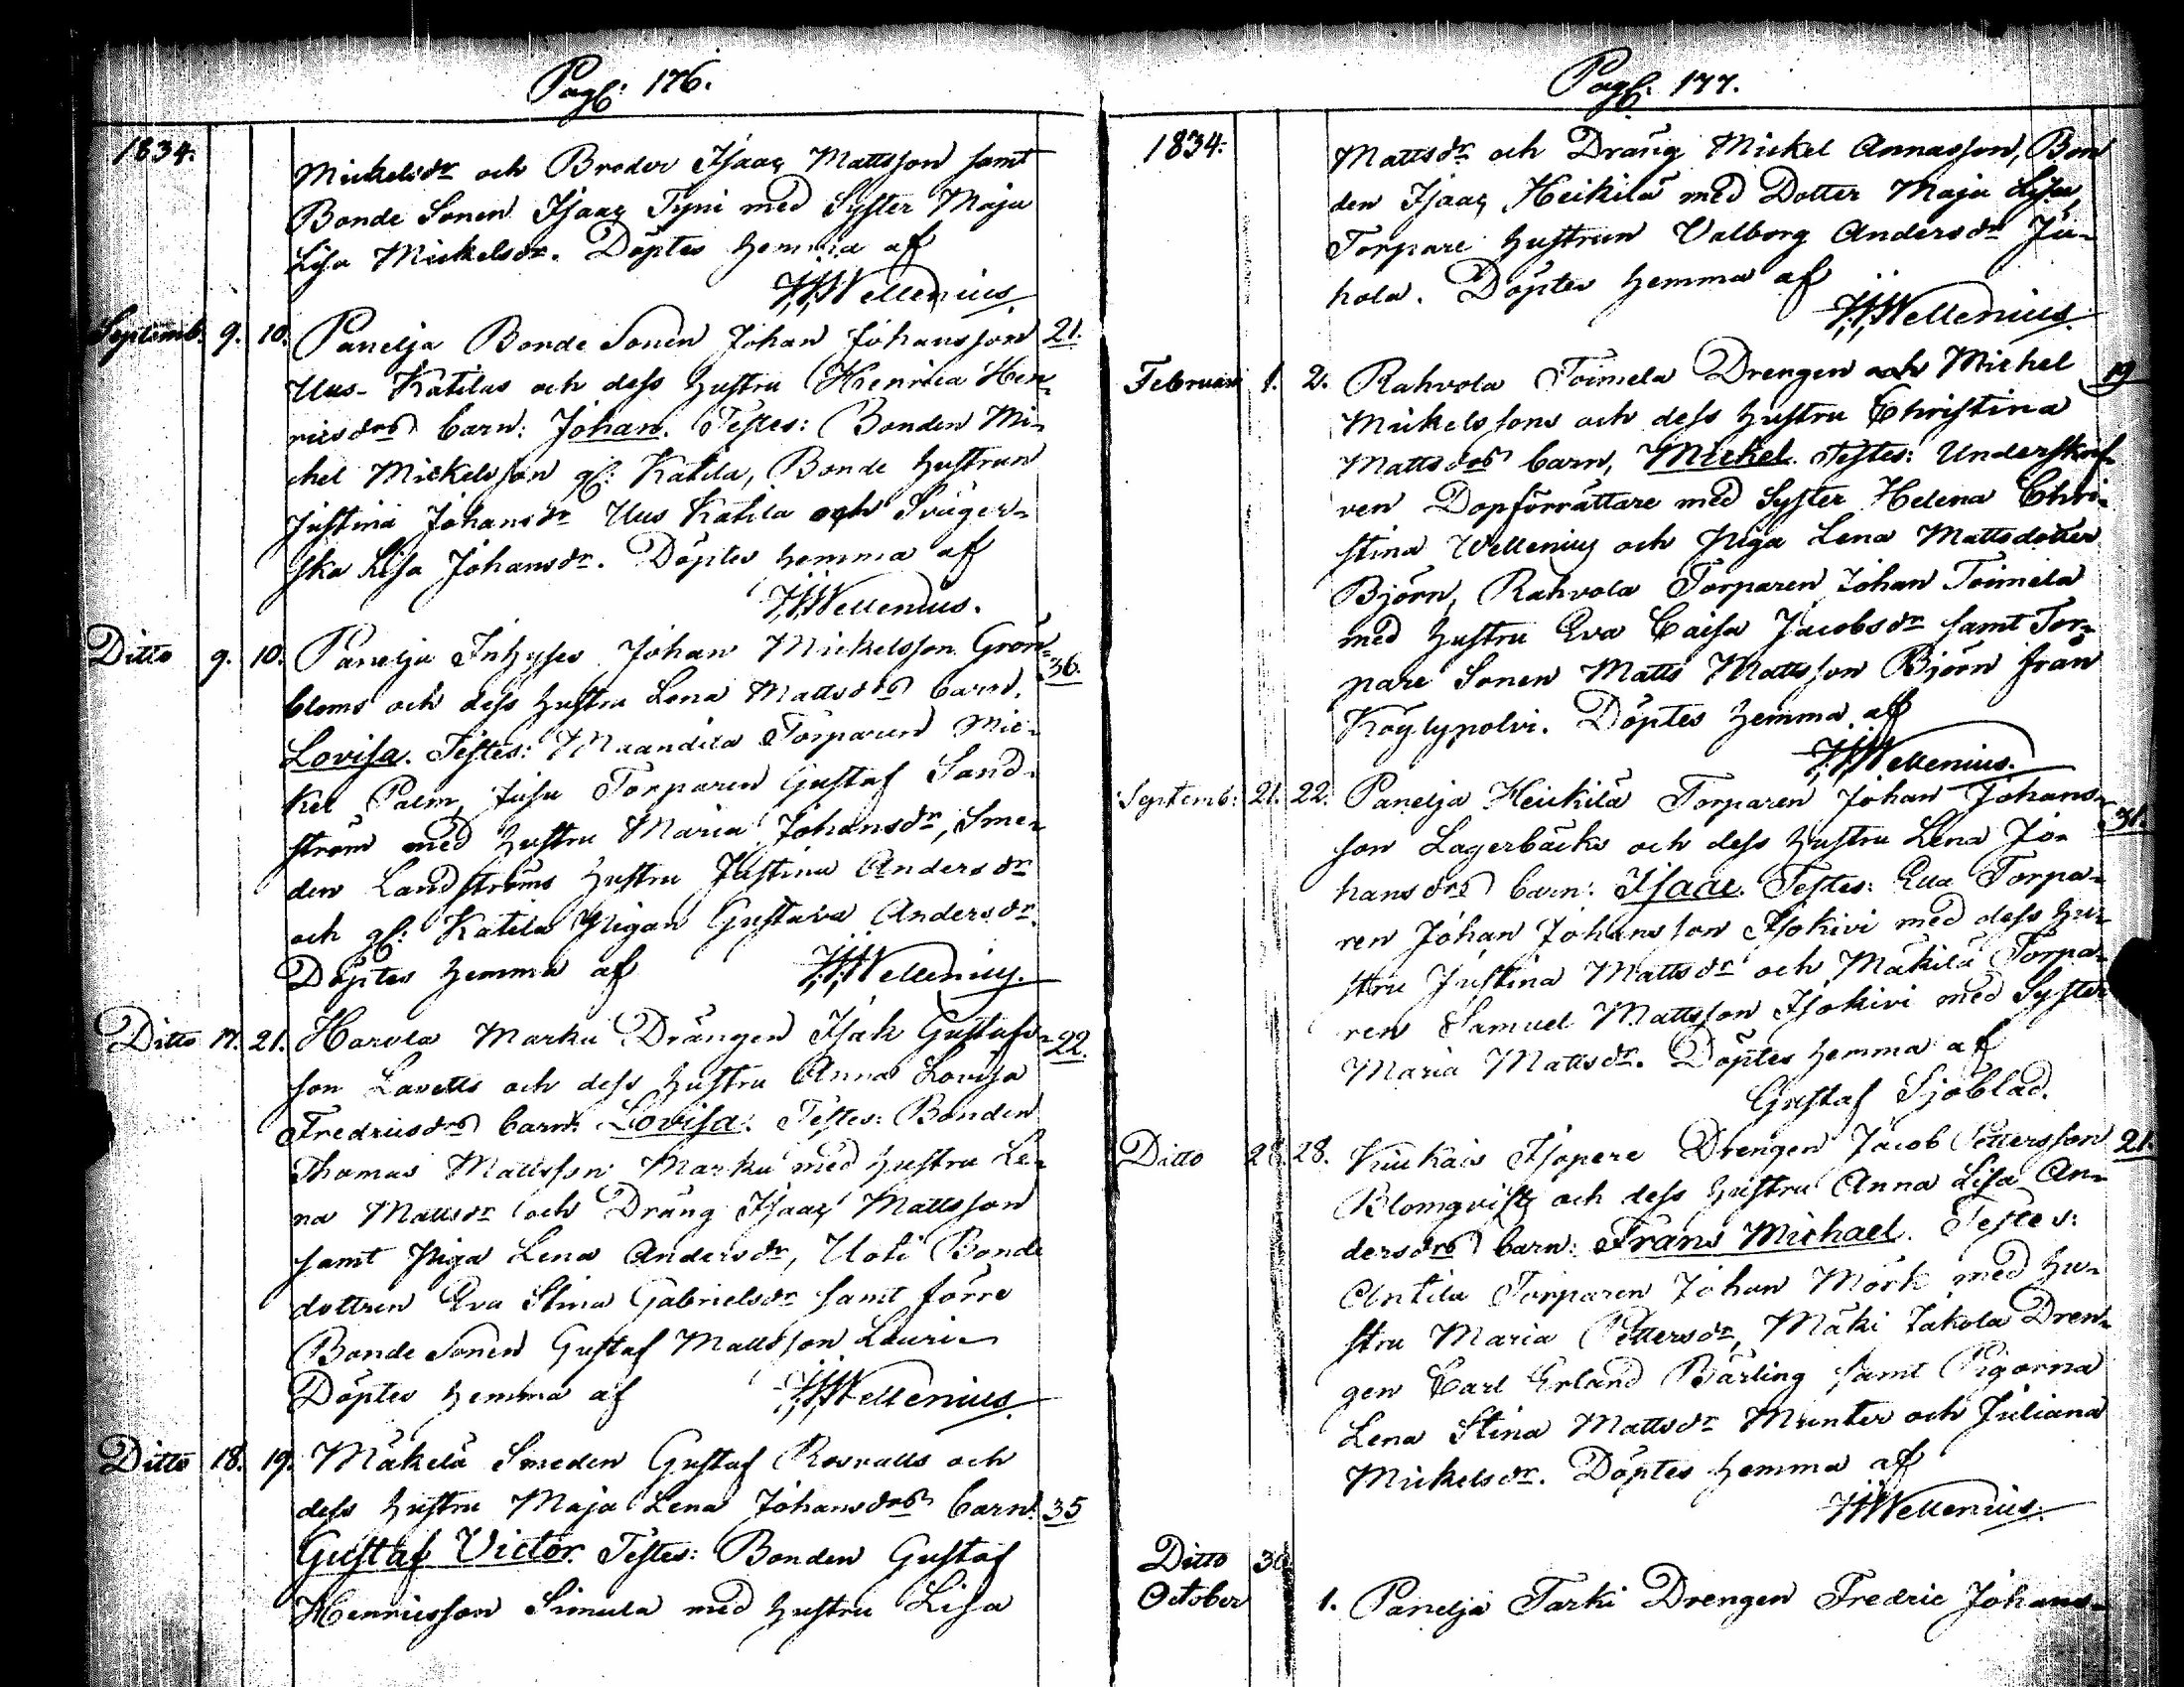 Pag: 176.
1834.
Mickelsdr och Broder Isaac Mattsson samt
Bonde Sonen Isaac Tyni med Syster Maja
Lisa Mickelsdr. Döptes hemma af
J:J:Wellenius.
Septemb: 9. 10. Panelja Bonde Sonen Johan Johansson 21.
Uus-Katilas och dess hustru Henrica Hen-
ricsdrs barn: Johan. Testes: Bonden Mi-
chel Mickelsson gl: Katila, Bonde hustrun
Justina Johansdr Uus Katila och Sväger-
ska Lisa Johansdr. Döptes hemma af
J:J:Wellenius.
Ditto 9. 10. Panelja Inhyses Johan Mickelsson Grön- 36.
bloms och dess hustru Lena Mattsdrs barn.
Lovisa. Testes: Maandila Torparen Mic-
kel Palm, Jusu Torparen Gustaf Sand-
ström med hustru Maria Johansdr, Sme-
den Landströms hustru Justina Andersdr
och gl: Katila Pigan Gustava Andersdr.
Döptes hemma af J:J:Wellenius.
Ditto 17. 21. Harola Marku Drängen Isak Gustafs- 22.
son Lavetts och dess hustru Anna Lovisa
Fredricsdrs barn: Lovisa. Testes: Bonden
Thomas Mattsson Marku med hustru Le-
na Mattsdr och Dräng Isaac Mattsson
samt Piga Lena Andersdr, Uoti Bonde
dottren Eva Stina Gabrielsdr samt förre
Bonde Sonen Gustaf Mattsson Lauri
Döptes hemma af J:J:Wellenius.
Ditto 18. 19. Mäkelä Smeden Gustaf Rosvalls och
dess hustru Maja Lena Johansdrs barn: 35
Gustaf Victor. Testes: Bonden Gustaf
Henricsson Simula med hustru Lisa
Pag: 177.
1834.
Mattsdr och Dräng Mickel Annasson, Bon
den Isaac Heikilä med Dotter Maja Lisa,
Torpare hustrun Valborg Andersdr Ju-
hola. Döptes hemma af
J:J:Wellenius.
Februari 1. 2. Rahvola Toimela Drengen och Michel 19
Mickelssons och dess hustru Christina
Mattsdrs barn, Mickel. Testes: Underskrif-
ven Dopförrättare med Syster Helena Chri-
stina Wellenius och Piga Lena Mattsdotter
Björn, Rahvola Torparen Johan Toimela
med hustru Eva Caisa Jacobsdr samt Tor-
pare Sonen Matts Mattsson Björn från
Köylypolvi. Döptes hemma af
J:J:Wellenius.
Septemb: 21. 22. Panelja Heickilä Torparen Johan Johans-
son Lagerbäcks och dess hustru Lena Jo- 31.
hansdrs barn: Isaac. Testes: Ella Torpa-
ren Johan Johansson Isokivi med dess hu-
stru Justina Mattsdr och Mäkilä Torpa-
ren Samuel Mattsson Isokivi med Syster
Maria Mattsdr. Döptes hemma af
Gustaf Sjöblad.
Ditto 28. 28. Kiukais Isopere Drengen Jacob Pettersson 21.
Blomqvists och dess hustru Anna Lisa An-
dersdrs barn: Frans Michael. Testes:
Antila Torparen Johan Mörk med hu-
stru Maria Pettersdr, Mäki Jakola Dren-
gen Carl Erland Bärling samt Pigorna
Lena Stina Mattsdr Munter och Juliana
Mickelsdr. Döptes hemma af
J:J:Wellenius.
Ditto 30
October 1. Panelja Tarki Drengen Fredric Johans-